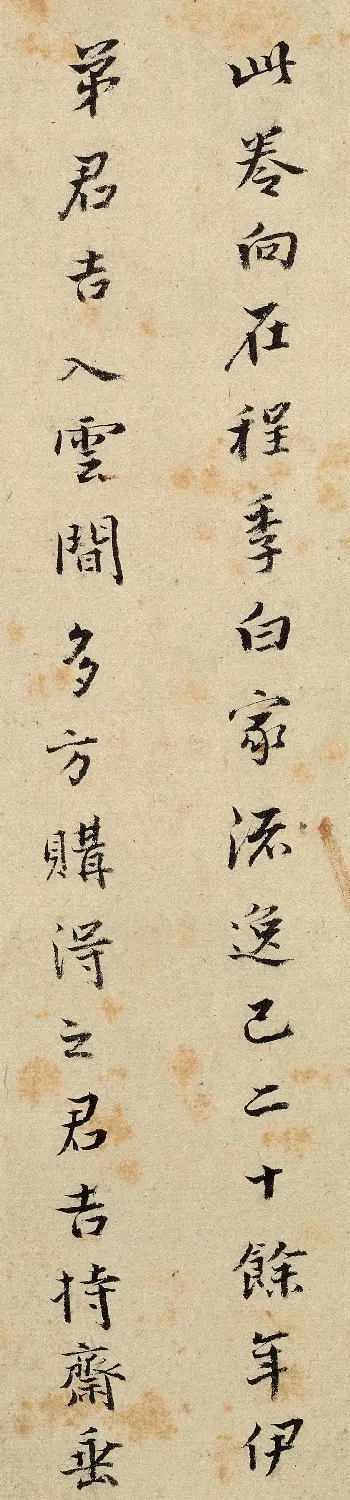 此卷向在程季白家流逸已二十餘年伊
弟君吉入雲間多方購得之君吉持齋垂